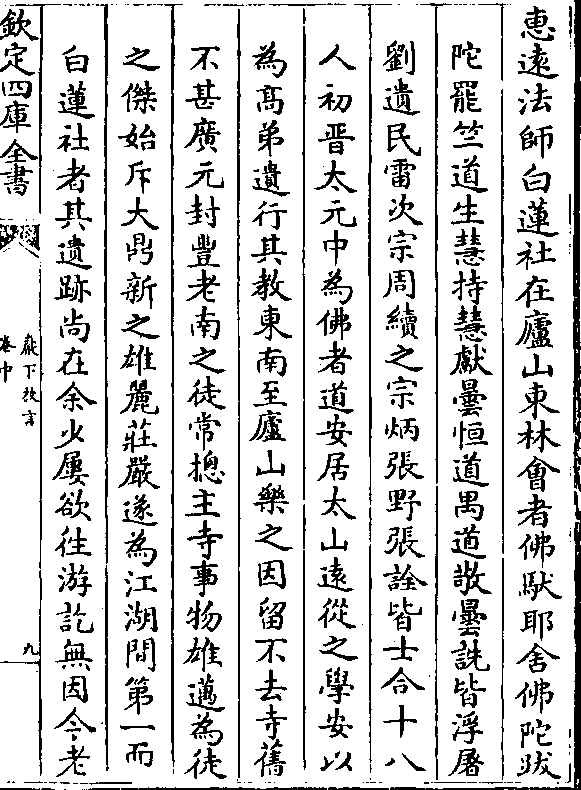 惠遠法師白蓮社在廬山東林會者佛馱耶舍佛陀䟦
陀羅竺道生慧持慧叡曇恒道昺道敬曇詵皆浮屠
劉遺民雷次宗周續之宗炳張野張詮皆士合十八
人初晋太元中為佛者道安居太山遠從之學安以
為髙弟遺行其教東南至廬山樂之因留不去寺舊
不甚廣元封豐老南之徒常揔主寺事物雄邁為徒
之傑始斥大鼎新之雄麗莊嚴遂為江湖間第一而
白蓮社者其遺跡尚在余少屢欲往游訖無因今老
欽定四庫全書
巖下放言
卷中
九